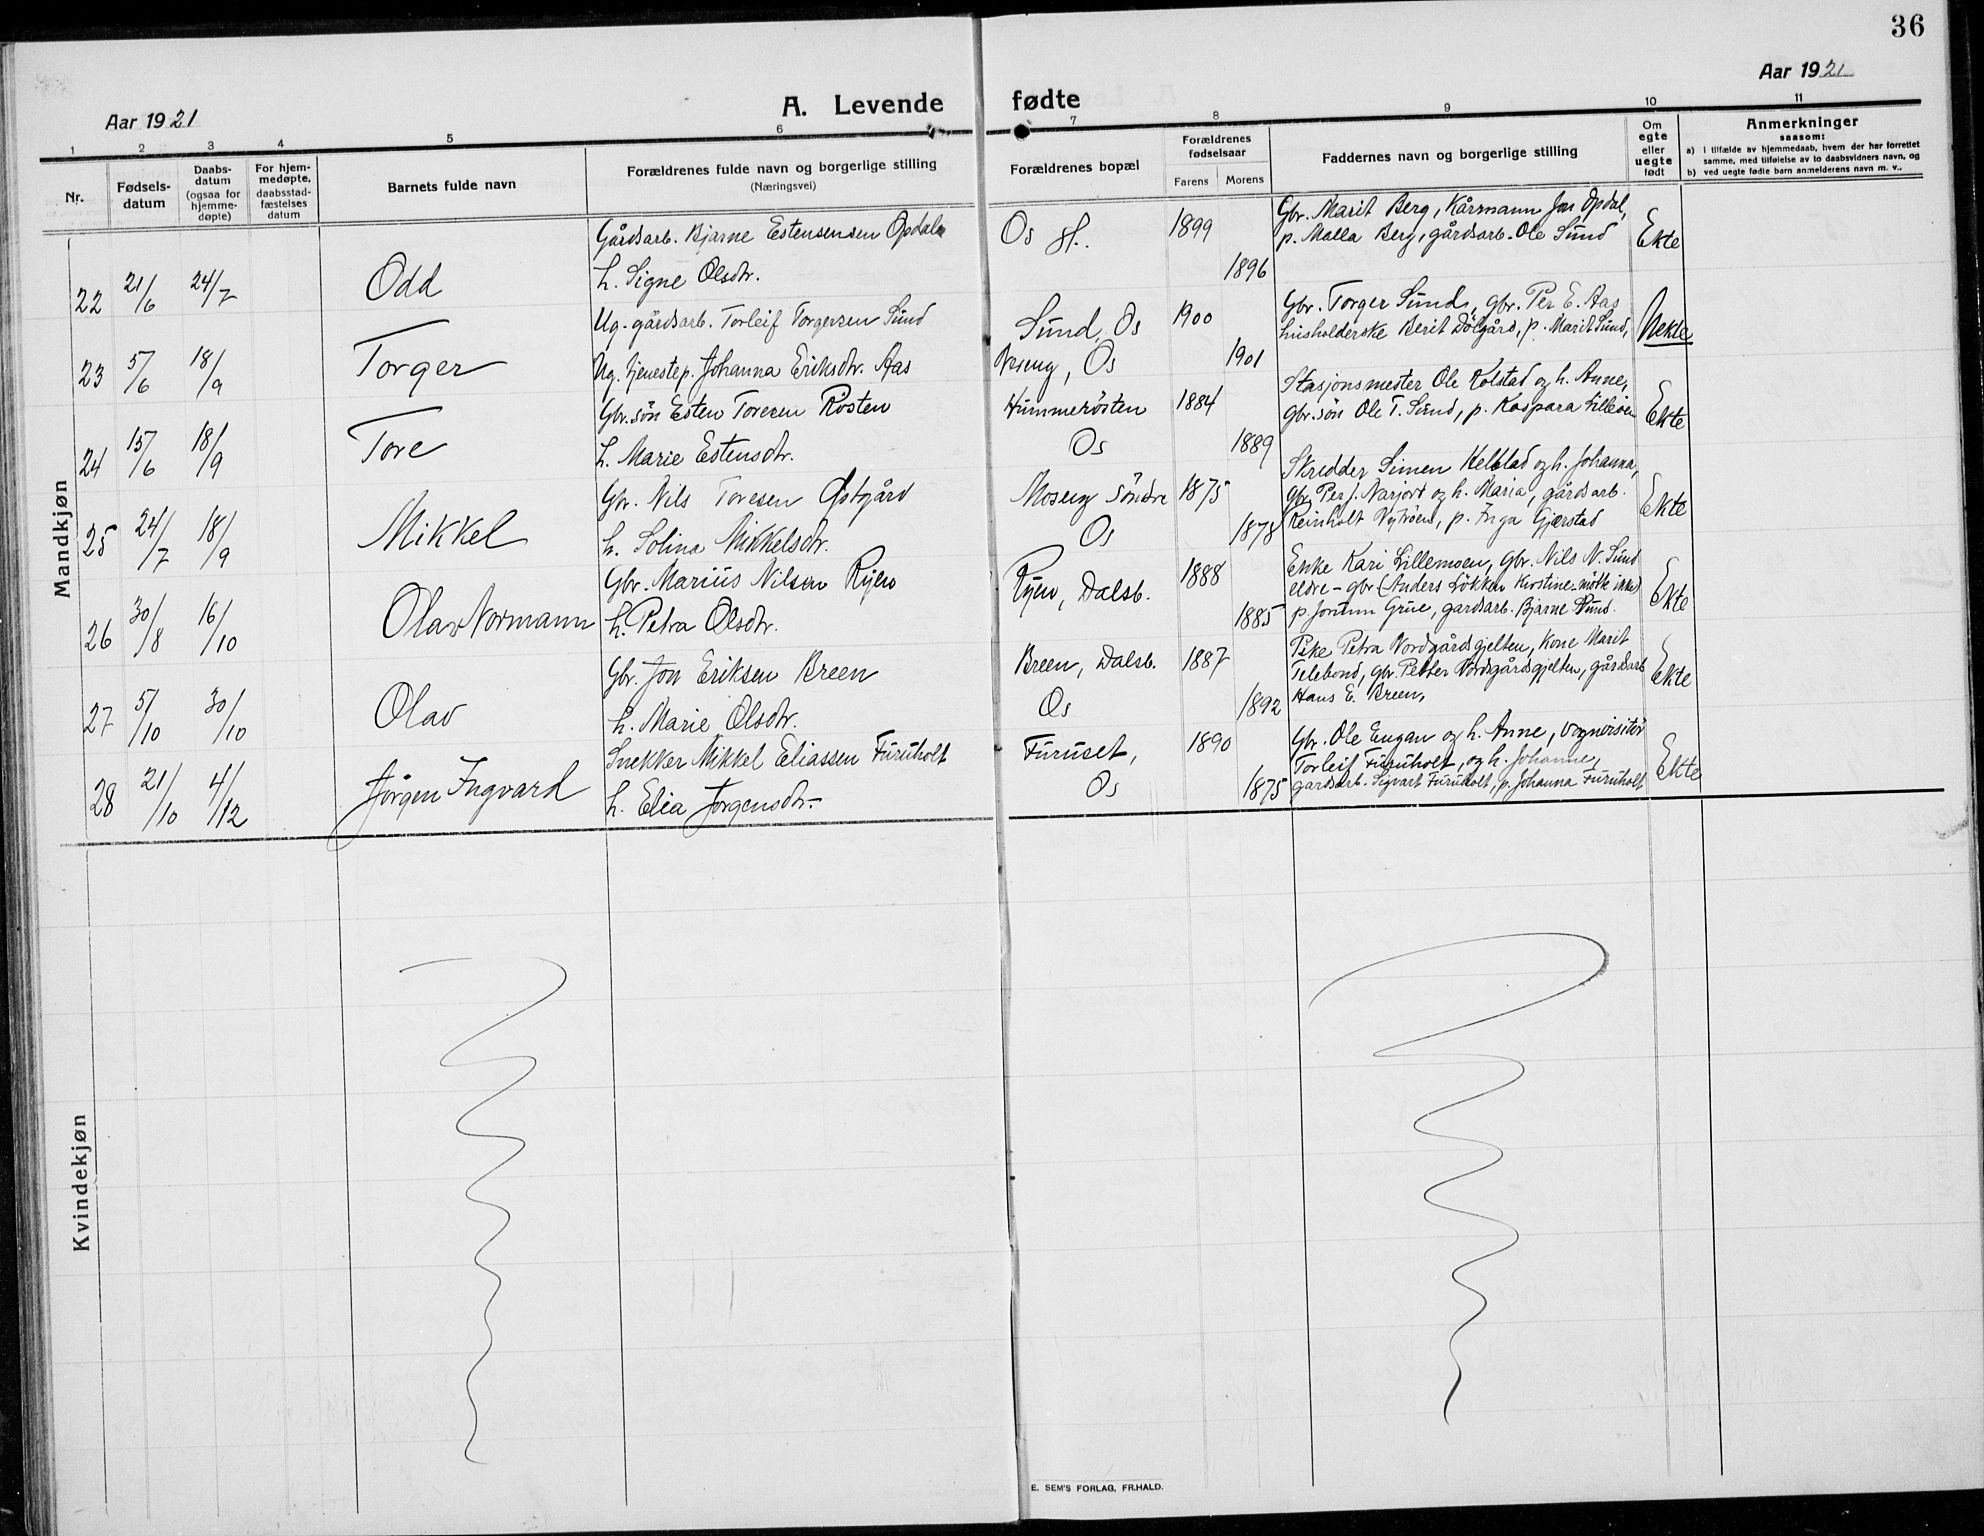 36
Aar 1921
A. Levende fødte
Aar 1921
1 2 3 4 5 6 7 8 9 10 11
Nr.
Fødsels-datum
Daabs-datum (ogsaa for hjemme-døpte)
For hjem-medøpte, daabsstad-fæstelses datum
Barnets fulde navn
Forældrenes fulde navn og borgerlige stilling (Næringsvei)
Forældrenes bopæl
Forældrenes fødselsaar
Farens Morens
Faddernes navn og borgerlige stilling
Om egte eller uegte født
Anmerkninger
saasom:
a) i tilfælde av hjemmedaab, hvem der har forrettet samme, med tilføielse av to daabsvidners navn, og
b) ved uegte fødte barn anmelderens navn m. v..
Mandkjøn
22 21/6 24/7 Odd
Gårdsarb. Bjarne Estensensen Opdal
h. Signe Olsdtr.
Os st. 1899 1896
Gbr. Marit Berg, Kårmann Jon Opdal,
p. Malla Berg, gårdsarb. Ole Sund
Ekte
23 5/6 18/9 Torger
Ug. gårdsarb. Torleif Torgersen Sund
Ug. tjenestep. Johanna Eriksdtr. Aas
Sund, Os 1900
Os 1901
Gbr. Torger Sund, gbr. Per E. Aas
husholderske Berit Dölgård, p. Marit Sund,
Uekte
24 15/6 18/9 Tore
Gbr.sön Esten Toresen Rosten
h. Marie Estensdtr.
Hummerösten 1884
Os 1889
Stasjonsmester Ole Kolstad og h. Anne,
gbr.sön Ole T. Sund, p. Kaspara Lilleöen
Ekte
25 24/7 18/9 Mikkel
Gbr. Nils Toresen Østgård
h. Solina Mikkelsdtr.
Moseng söndre 1875
Os 1878
Skredder Simen Kelstad og h. Johanna,
gbr. Per J. Narjord og h. Maria, gårdsarb.
Reinholt Nytröen, p. Inga Gjerstad
Ekte
26 30/8 16/10 Olav Normann
Gbr. Marius Nilsen Ryen
h. Petra Olsdtr.
Ryen, Dalsb. 1888 1885
Enke Kari Lillemoen, Gbr. Nils N. Sund
eldre – gbr (Anders Lökken Kirstine – mötte ikke)
p. Jorunn Grue, gardsarb. Bjarne Sund.
Ekte
27 5/10 30/10 Olav
Gbr. Jon Eriksen Breen
h. Marie Olsdtr.
Breen, Dalsb. 1887
Os 1892
Pike Petra Nordgårdsgjelten, Kone Marit
Telebond, gbr. Petter Nordgårdsgjelten, gårdsarb
Hans E. Breen,
Ekte
28 21/10 4/12 Jörgen Ingvard
Snekker Mikkel Eliassen Furuholt
h. Elia Jörgensdtr.
Furuset, 1890
Os 1875
Gbr. Ole Engan og h. Anne, vognvisitör
Torleif Furuholt, og h. Johanne,
gardsarb. Sigvart Furuholt, p. Johanna Furuholt
Ekte
Kvindekjøn
E. SEM'S FORLAG, FR.HALD.